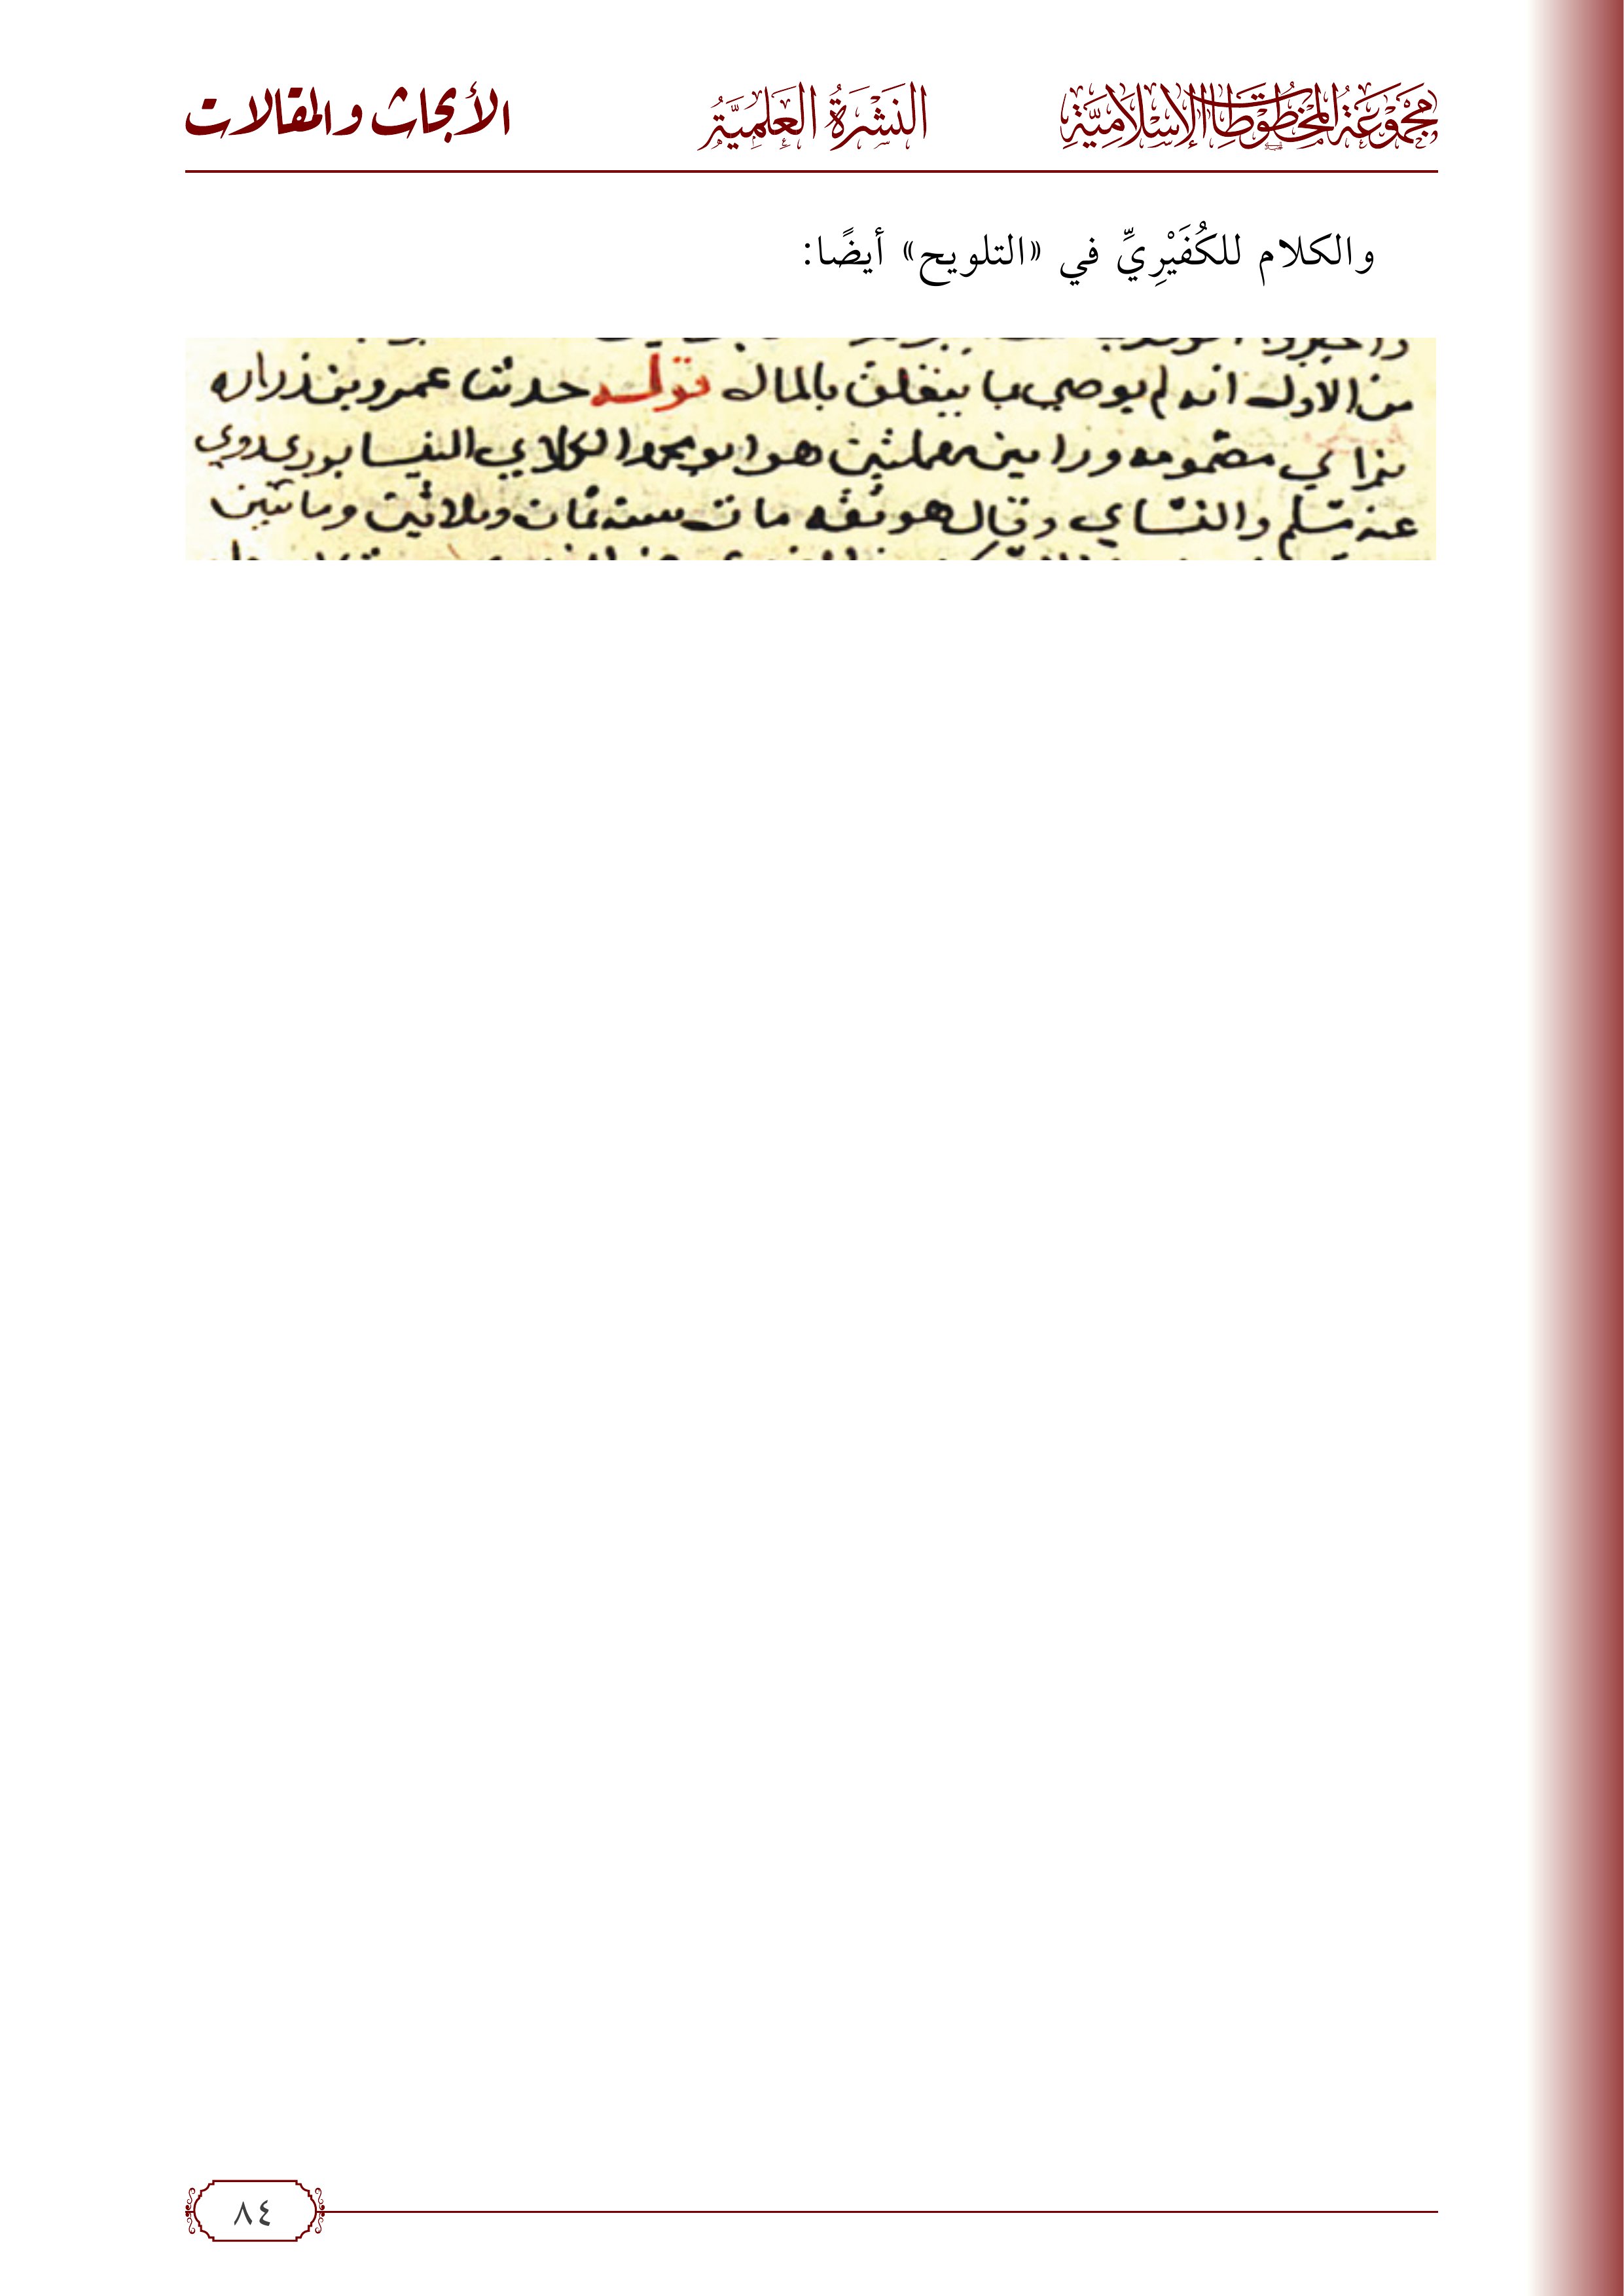 مَجْمُوعَةُ المَخْطُوطَاتِ الإِسْلَامِيَّةِ
النَّشْرَةُ العِلْمِيَّةُ
الأبحاث والمقالات
والكلام للكُفَيْرِيِّ في «التلويح» أيضًا:
من الاول انه لم يوصي بما يتعلق بالمال قوله حدثنا عمرو بن زراره
بزاي مضمومه وراين مهملتين هو ابو محمد الكلابي النيسابوري روي
عنه مسلم والنساي وقال هو ثقه مات سنه ثمان وثلاثين ومائتين
٨٤